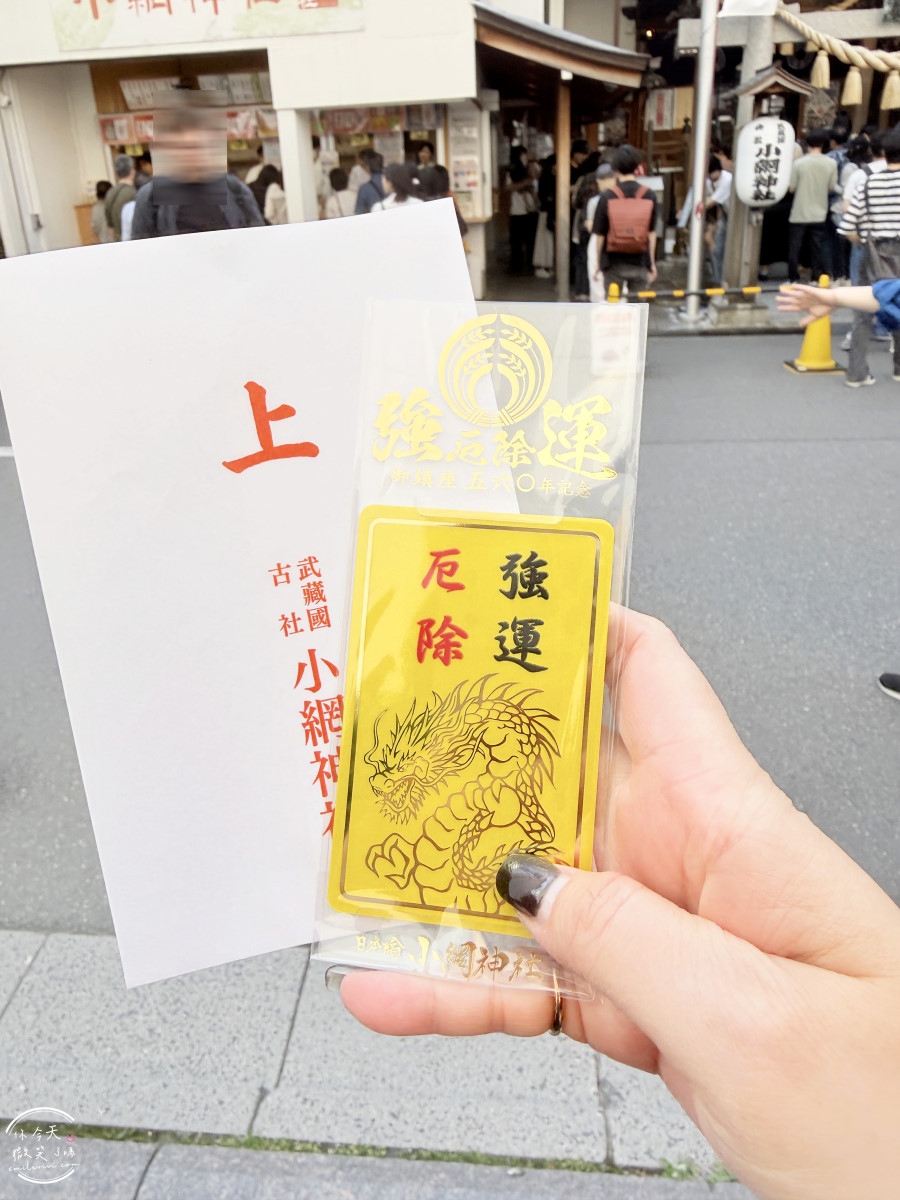 小網神社
小網神社
上
武藏國
古社
小網神社
強運
厄除
御鎮座五六〇年記念
強運
厄除
日本橋 小網神社
你今天
微笑了嗎